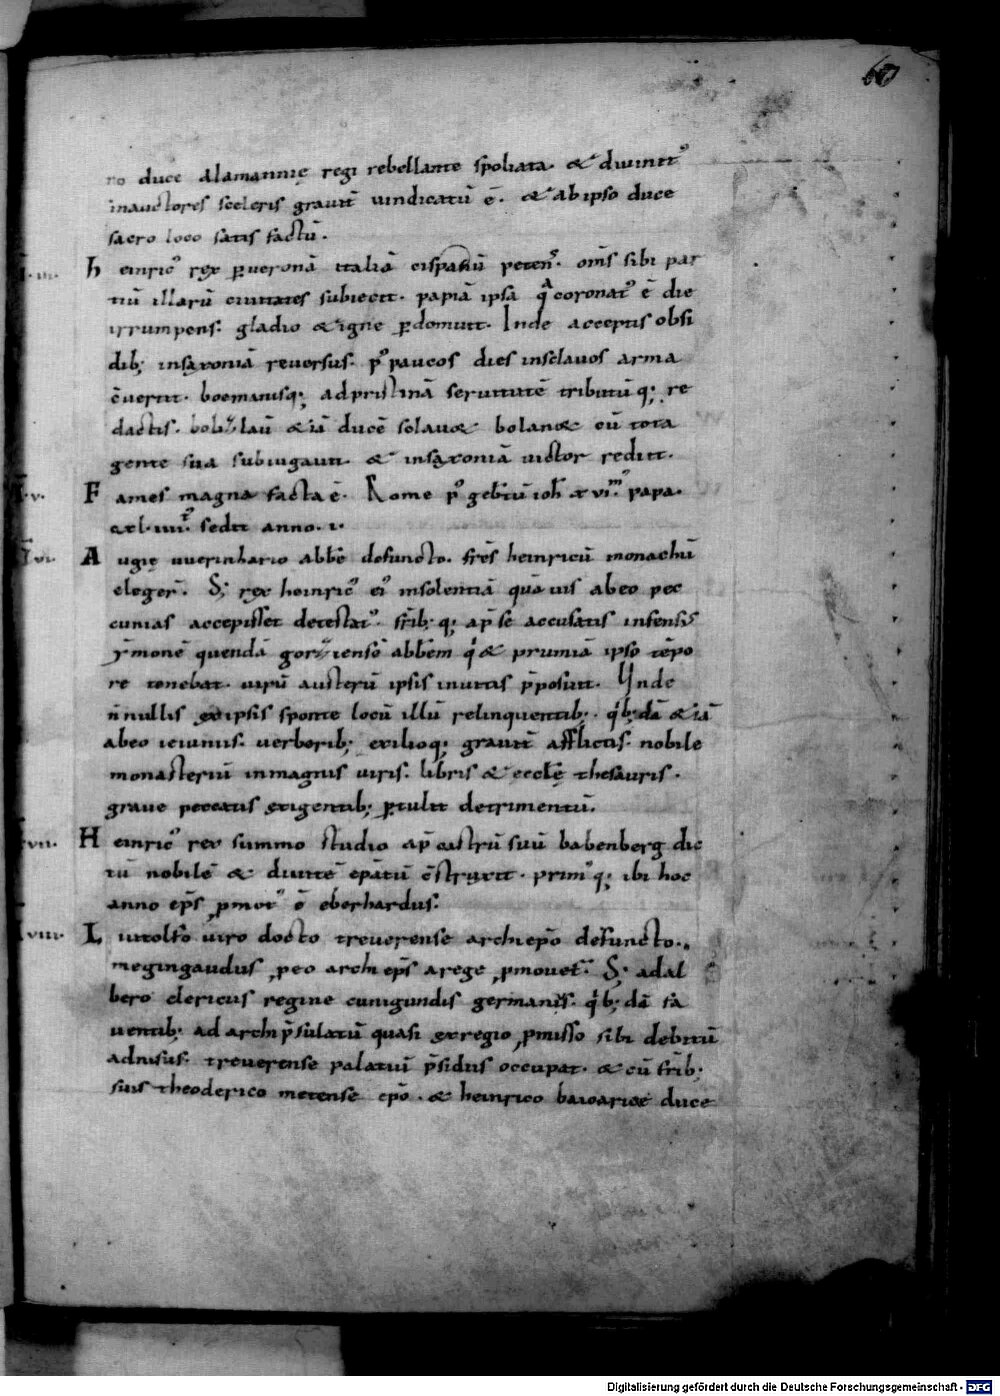 60
ro duce alamannię regi rebellante spoliata. & diuinit᷒
inauctores sceleris grauit̄ uindicatū ē. & ab ipso duce
sacro loco satis factū.
.iiii. h einric᷒ rex p̱ueronā italiā cispadū peten̄s. om̄s sibi par
tiū illarū ciuitates subiecit. papiā ipsā q̄ coronat᷒ ē die
irrumpens. gladio & igne p̱domuit. Inde acceptis obsi
dib; insaxoniā reuersus. p᷒ paucos dies insclauos arma
c̄uertit. boemanisq; ad pristinā seruitutē tributūq; re
dactis. bolizlaū &iā ducē solauoꝝ bolanoꝝ cū tota
gente sua subiugauit. & insaxoniā uictor rediit.
.v. F ames magna facta ē. Rome p᷒ gebtū ioh̄ xvi.m᷒ papa.
cxl.iiii.᷒ sedit anno .i.
vi. A ugię uuerinhario abb̄e defuncto. fr̄es heinricū monachū
eleger̄. S; rex heinric᷒ ei᷒ insolentiā quāuis ab eo pec
cunias accepisset detestat᷒. fr̄ib; q; ap̄ se accusatis infens᷒
ỹmonē quendā gorziensē abb̄em q̇ & prumiā ipso tēpo
re tenebat. uirū austerū ipsis inuitis p̄posuit. Unde
n̄nullis ex ipsis sponte locū illū relinquentib;. q̇b;dā &iā
ab eo ieiuniis. uerberib; exilioq; grauit̄ afflictis. nobile
monasteriū in magnis uiris. libris & eccl̄ę thesauris.
graue peccatis exigentib; p̱tulit detrimentū.
.vii. H einric᷒ rex summo studio ap̄ castrū suū babenberg dic
tū nobilē & diuitē epātū c̄struxit. prim᷒q; ibi hoc
anno ep̄s ꝓmot᷒ ē eberhardus.
viii. L iutolfo uiro docto treuerense archiep̄o defuncto.
megingaudus ꝓ eo archi ep̄s a rege ꝓmouet᷒. S; adal
bero clericus regine cunigundis germanus. q̇b;dā fa
uentib; ad archip̄sulatū quasi ex regio ꝓmisso sibi debitū
adnisus. treuerense palatiū p̄sidiis occupat. & cū fr̄ib;
suis theoderico metense ep̄o. & heinrico baioariae duce
Digitalisierung gefördert durch die Deutsche Forschungsgemeinschaft - DFG